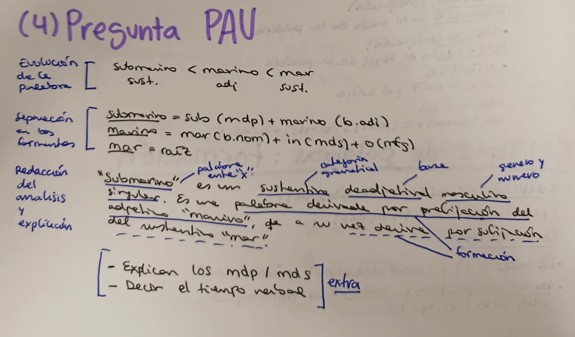 (4) Pregunta PAU
Evolución de la palabra
submarino < marino < mar
sust. adj sust.
Separación en los formantes
submarino = sub (mdp) + marino (b.adj)
marino = mar (b.nom) + in (mds) + o (mfg)
mar = raíz
Redacción del analisis y explicación
palabra entre "x"
categoría gramatical
base
genero y numero
"submarino" es un sustantivo deadjetival masculino
singular. Es una palabra derivada por prefijación del
adjetivo "marino", que a su vez deriva por sufijación
del sustantivo "mar".
formación
- Explican los mdp / mds
- Decir el tiempo verbal
extra